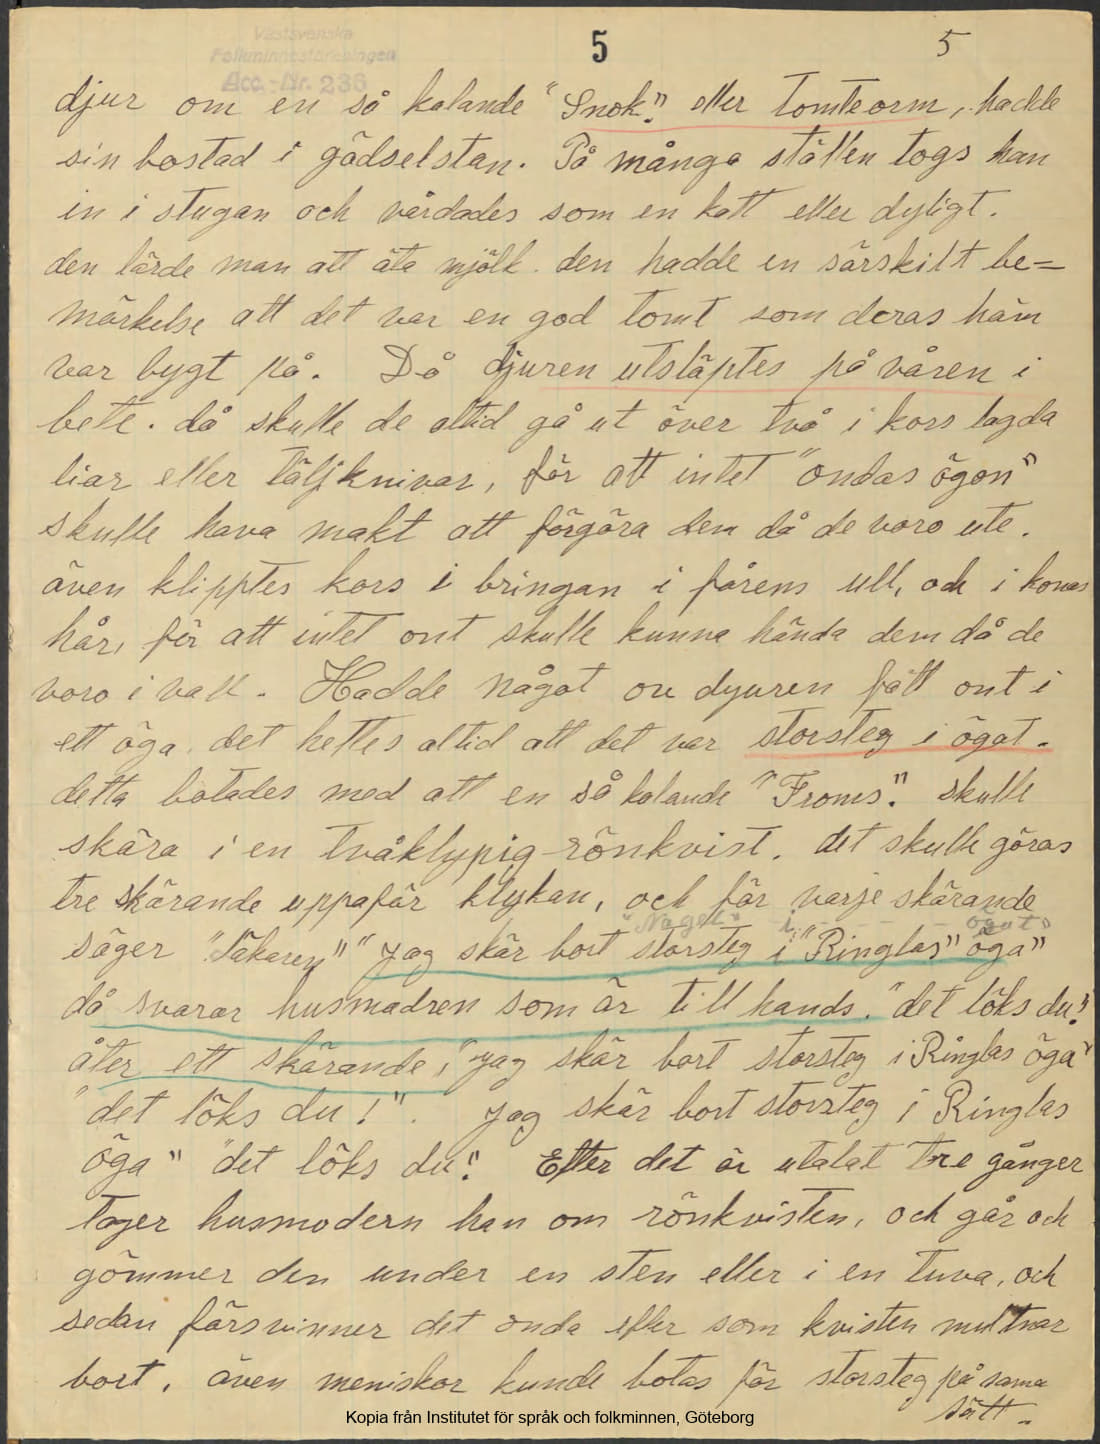 Västsvenska
Folkminnesföreningen
Acc.-Nr. 236
5
5
djur om en så kalande "Snok." eller tomteorm, hadde
sin bostad i gödselstan. På många ställen togs han
in i stugan och vårdades som en katt eller dyligt.
den lärde man att äta mjölk. den hadde en särskilt be=
märkelse att det var en god tomt som deras häm
var bygt på. Då djuren utsläptes på våren i
bete. då skulle de altid gå ut över två i kors lagda
liar eller täljknivar, för att intet "ondas ögon"
skulle hava makt att förgöra dem då de voro ute.
även klipptes kors i bringan i fårens ull, och i kornas
hår, för att intet ont skulle kunna hända dem då de
voro i vall. Hadde något av djuren fått ont i
ett öga. det hettes altid att det var storsteg i ögat.
detta botades med att en så kalande "Froms." skulle
skära i en tvåklypig rönkvist. det skulle göras
tre skärande uppaför klykan, och för varje skärande
"Nagel" i ögat"
säger "Läkaren" "Jag skär bort storsteg i "Ringlas" öga"
då svarar husmodren som är till hands. "det löks du!"
åter ett skärande, "Jag skär bort storsteg i Ringlas öga"
"det löks du!". Jag skär bort storsteg i Ringlas
öga" "det löks du." Efter det är utalat tre gånger
tager husmodern han om rönkvisten, och går och
gömmer den under en sten eller i en tuva, och
sedan försvinner det onda efter som kvisten multnar
bort. även meniskor kunde botas för storsteg på sama
sätt.
Kopia från Institutet för språk och folkminnen, Göteborg